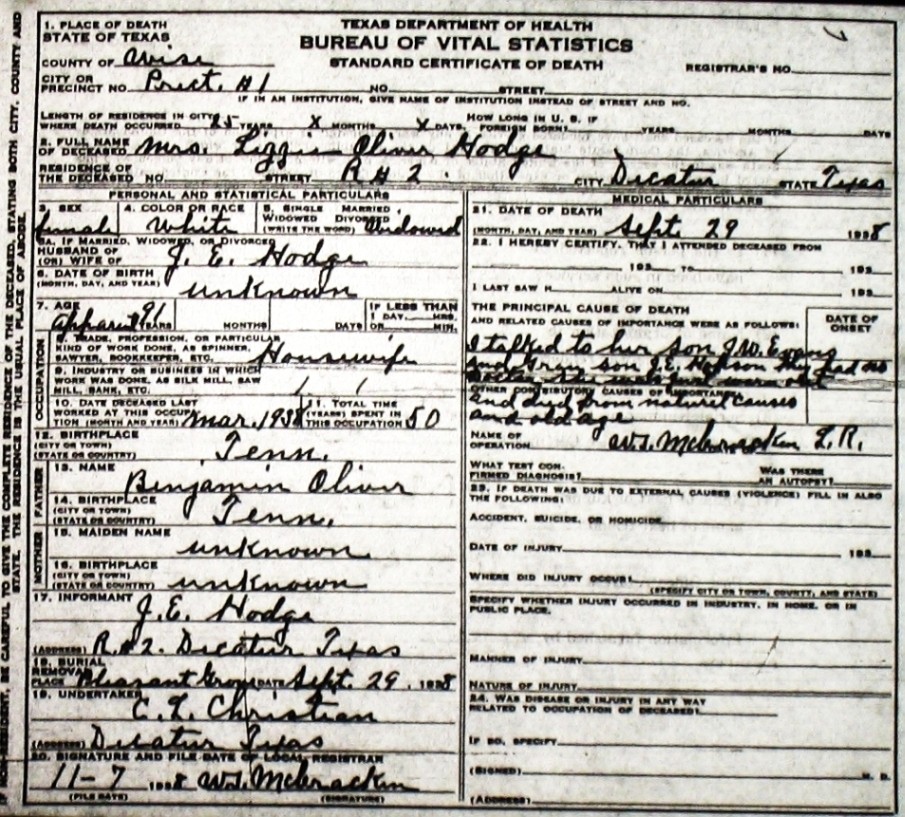 TEXAS DEPARTMENT OF HEALTH
BUREAU OF VITAL STATISTICS
STANDARD CERTIFICATE OF DEATH
REGISTRAR'S NO.
1. PLACE OF DEATH
STATE OF TEXAS
COUNTY OF Wise
CITY OR
PRECINCT NO. Prect. #1 NO. STREET
IF IN AN INSTITUTION, GIVE NAME OF INSTITUTION INSTEAD OF STREET AND NO.
LENGTH OF RESIDENCE IN CITY
WHERE DEATH OCCURRED 25 YEARS X MONTHS X DAYS. HOW LONG IN U. S. IF FOREIGN BORN? YEARS MONTHS DAYS
2. FULL NAME
OF DECEASED Mrs. Lizzie Oliver Hodge
RESIDENCE OF
THE DECEASED NO. STREET R # 2 CITY Decatur STATE Texas
PERSONAL AND STATISTICAL PARTICULARS
3. SEX female 4. COLOR OR RACE White 5. SINGLE MARRIED, WIDOWED DIVORCED (WRITE THE WORD) Widowed
5A. IF MARRIED, WIDOWED, OR DIVORCED
HUSBAND OF
(OR) WIFE OF J. E. Hodge
6. DATE OF BIRTH
(MONTH, DAY, AND YEAR) unknown
7. AGE IF LESS THAN
apparent 91 YEARS MONTHS DAYS 1 DAY HRS. OR MIN.
OCCUPATION
8. TRADE, PROFESSION, OR PARTICULAR
KIND OF WORK DONE, AS SPINNER,
SAWYER, BOOKKEEPER, ETC. Housewife
9. INDUSTRY OR BUSINESS IN WHICH
WORK WAS DONE, AS SILK MILL, SAW
MILL, BANK, ETC.
10. DATE DECEASED LAST
WORKED AT THIS OCCUPATION (MONTH AND YEAR) Mar. 1938 11. TOTAL TIME (YEARS) SPENT IN THIS OCCUPATION 50
12. BIRTHPLACE
(CITY OR TOWN)
(STATE OR COUNTRY) Tenn.
FATHER
13. NAME
Benjamin Oliver
14. BIRTHPLACE
(CITY OR TOWN)
(STATE OR COUNTRY) Tenn.
MOTHER
15. MAIDEN NAME
unknown
16. BIRTHPLACE
(CITY OR TOWN)
(STATE OR COUNTRY) unknown
17. INFORMANT
J. E. Hodge
(ADDRESS) R. #2. Decatur Texas
18. BURIAL
REMOVAL
PLACE Pleasant Grove DATE Sept. 29, 1938
19. UNDERTAKER
C. L. Christian
(ADDRESS) Decatur Texas
20. SIGNATURE AND FILE DATE OF LOCAL REGISTRAR
11-7 1938 W.S. McCracken
(FILE DATE) (SIGNATURE)
MEDICAL PARTICULARS
21. DATE OF DEATH
(MONTH, DAY, AND YEAR) Sept. 29 1938
22. I HEREBY CERTIFY, THAT I ATTENDED DECEASED FROM
193 TO 193
I LAST SAW H ALIVE ON 193
THE PRINCIPAL CAUSE OF DEATH
AND RELATED CAUSES OF IMPORTANCE WERE AS FOLLOWS:
DATE OF
ONSET
I talked to her son J.W. Evans
and son J.E. they had no
old
OTHER CONTRIBUTORY CAUSES OF IMPORTANCE
and died from natural causes
and old age
NAME OF
OPERATION W.S. McCracken L.R.
WHAT TEST CONFIRMED DIAGNOSIS? WAS THERE AN AUTOPSY?
23. IF DEATH WAS DUE TO EXTERNAL CAUSES (VIOLENCE) FILL IN ALSO
THE FOLLOWING:
ACCIDENT, SUICIDE, OR HOMICIDE
DATE OF INJURY 193
WHERE DID INJURY OCCUR?
(SPECIFY CITY OR TOWN, COUNTY, AND STATE)
SPECIFY WHETHER INJURY OCCURRED IN INDUSTRY, IN HOME, OR IN
PUBLIC PLACE.
MANNER OF INJURY
NATURE OF INJURY
24. WAS DISEASE OR INJURY IN ANY WAY
RELATED TO OCCUPATION OF DECEASED?
IF SO, SPECIFY
(SIGNED) M. D.
(ADDRESS)
NON-RESIDENT, BE CAREFUL TO GIVE THE COMPLETE RESIDENCE OF THE DECEASED, STATING BOTH CITY, COUNTY AND
STATE. THE RESIDENCE IS THE USUAL PLACE OF ABODE.